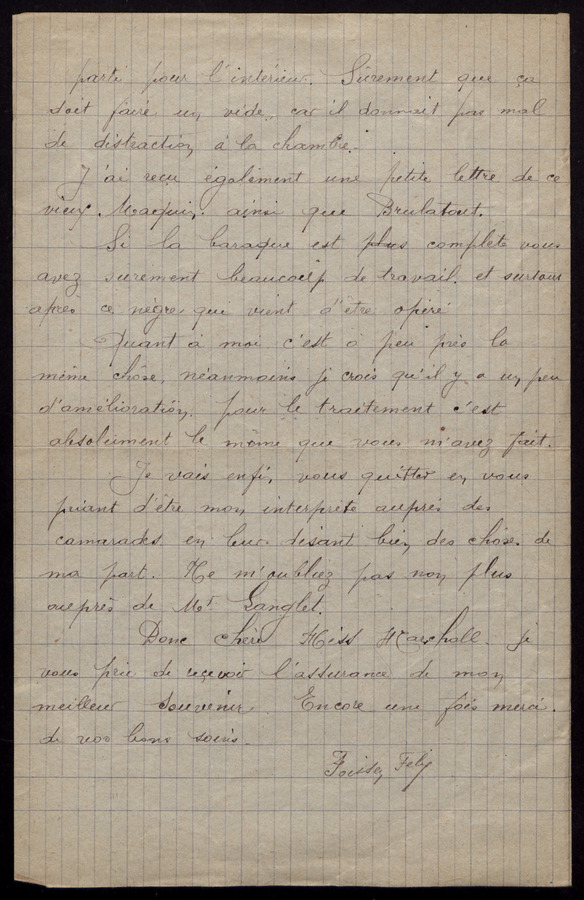 parti pour l'intérieur. Sûrement que ça
doit faire un vide, car il donnait pas mal
de distraction à la chambre.
J'ai reçu également une petite lettre de ce
vieux Macquin, ainsi que Brulatout.
Si la baraque est plus complète vous
avez surement beaucoup de travail. et surtout
après ce nègre qui vient d'être opéré
Quant à moi c'est à peu près la
même chose, néanmoins je crois qu'il y a un peu
d'amélioration, pour le traitement c'est
absolument le même que vous m'avez fait.
Je vais enfin vous quitter en vous
priant d'être mon interprète auprès des
camarades en leur disant bien des choses de
ma part. Ne m'oubliez pas non plus
auprès de Mr Langlet.
Donc chère Miss Marschall. je
vous prie de reçevoir l'assurance de mon
meilleur souvenir. Encore une fois merci.
de vos bons soins.
Félix